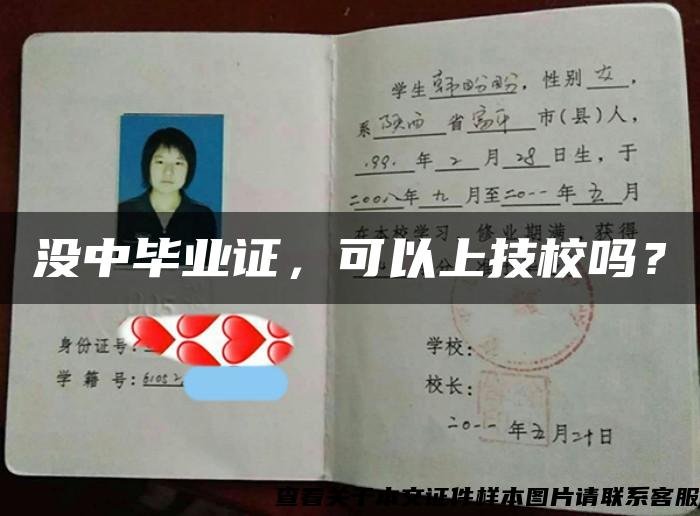 学生韩盼盼，性别女，
系陕西省富平市(县)人，
.99.年2月28日生，于
二00八年九月至二0一一年五月
在本校学习，修业期满，获得
没中毕业证，可以上技校吗？
身份证号：
学籍号：6105
学校：
校长：
二0一一年五月二十日
查看关于本文证件样本图片请联系客服